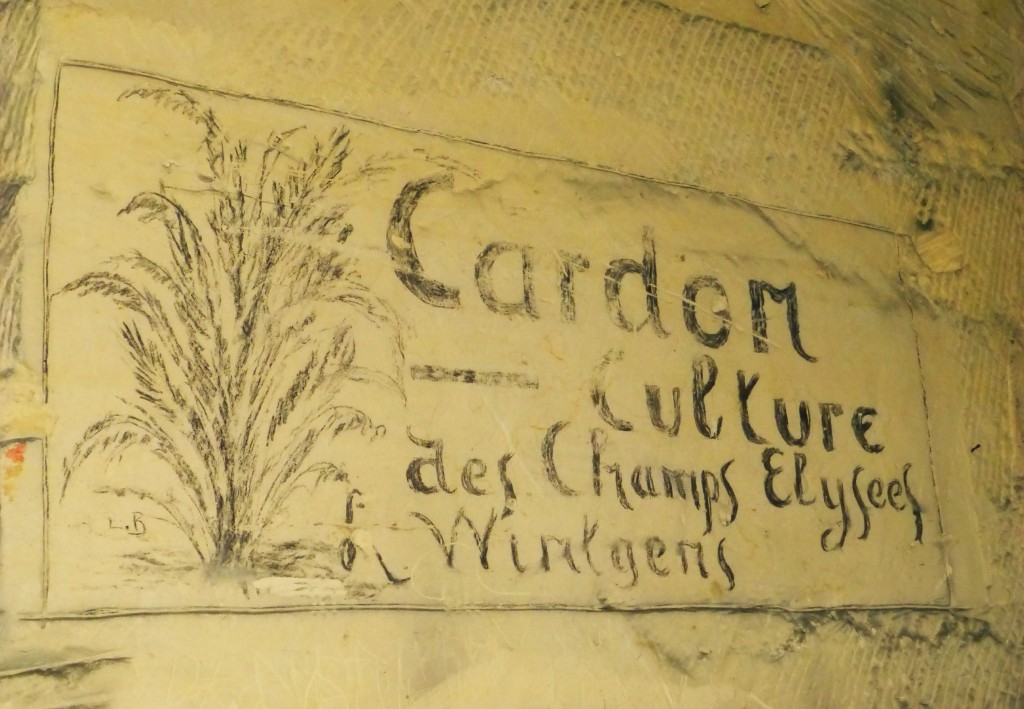 Cardon
- Culture
des Champs Elysees
à Wintgens
L.B